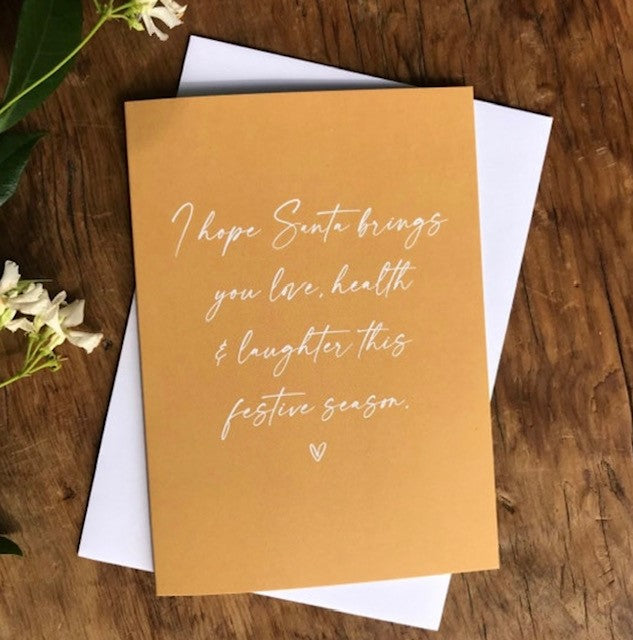 I hope Santa brings
you love, health
& laughter this
festive season.